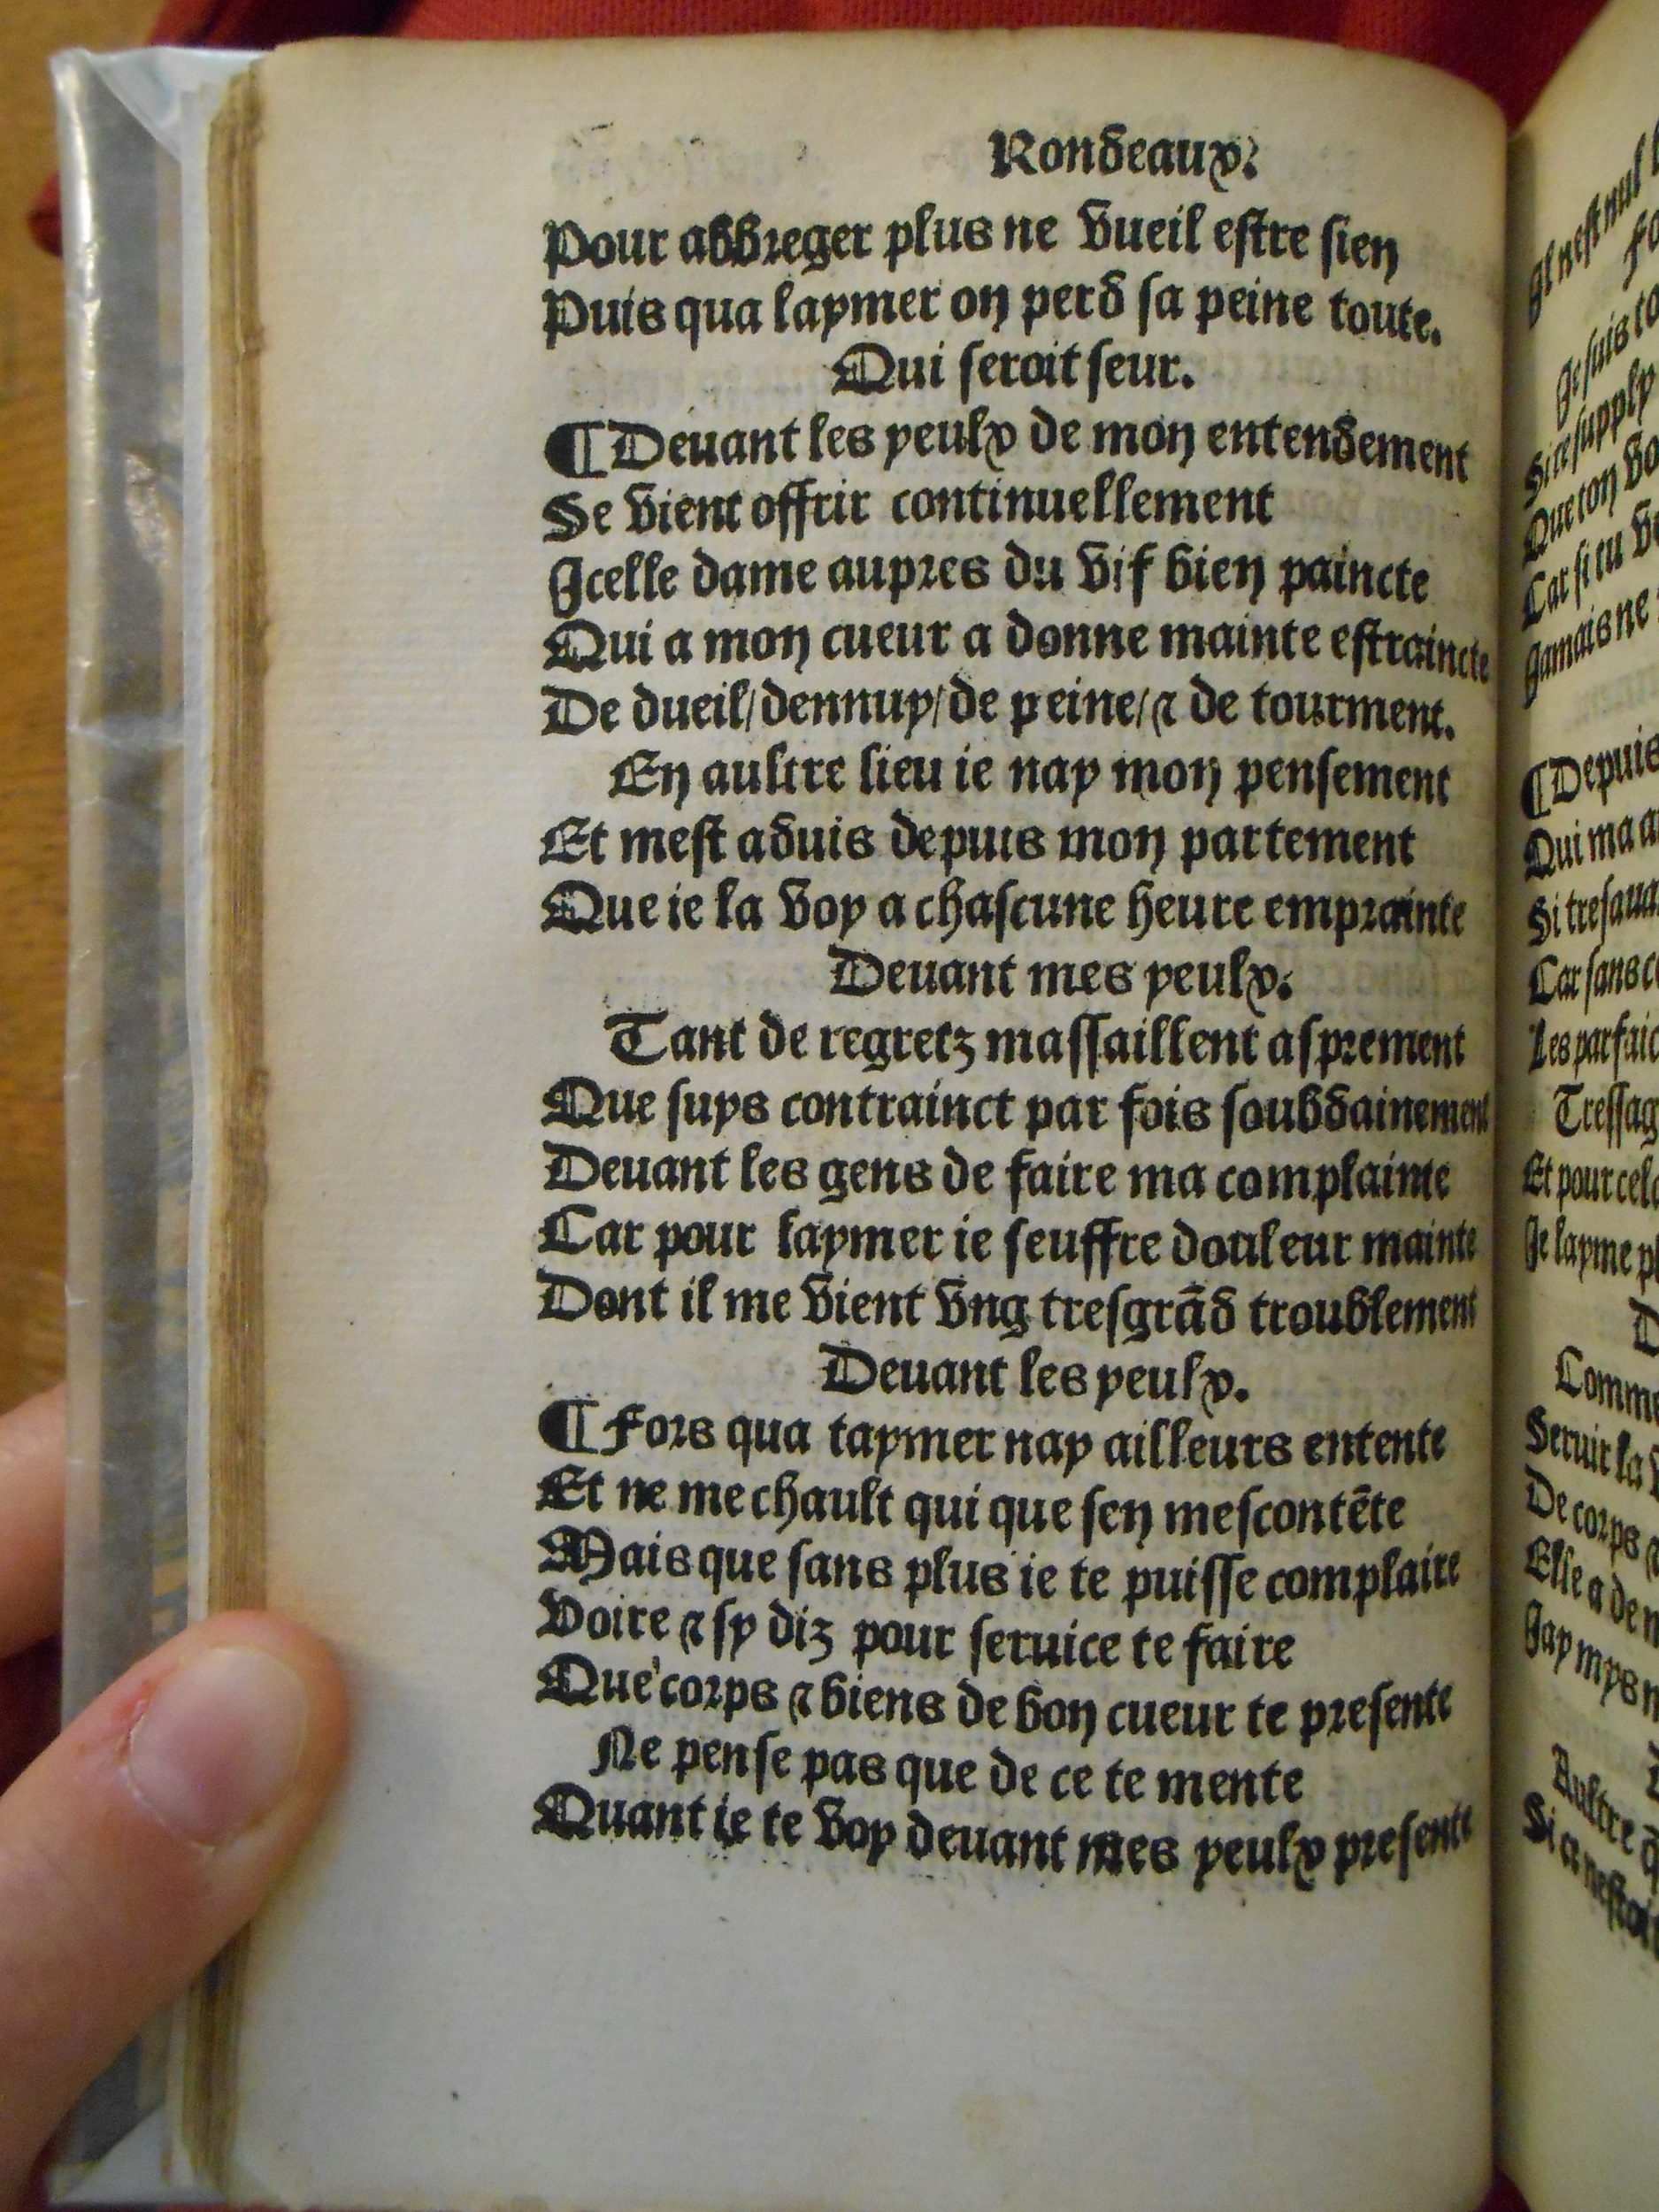 Rondeaux.
Pour abbreger plus ne vueil estre sien
Puis qua laymer on perd sa peine toute.
Qui seroit seur.
¶ Deuant les yeulx de mon entendement
Se vient offrir continuellement
Icelle dame aupres du vif bien paincte
Qui a mon cueur a donne mainte estraincte
De dueil/dennuy/de peine/⁊ de tourment.
En aultre lieu ie nay mon pensement
Et mest aduis depuis mon partement
Que ie la voy a chascune heure emprainte
Deuant mes yeulx.
Tant de regretz massaillent asprement
Que suys contrainct par fois soubdainement
Deuant les gens de faire ma complainte
Car pour laymer ie seuffre douleur mainte
Dont il me vient vng tresgrãd troublement
Deuant les yeulx.
¶ Fors qua taymer nay ailleurs entente
Et ne me chault qui que sen mescontẽte
Mais que sans plus ie te puisse complaire
Voire ⁊ sy diz pour seruice te faire
Que corps ⁊ biens de bon cueur te presente
Ne pense pas que de ce te mente
Quant ie te voy deuant mes yeulx presente
Il nest nul
Je suis
Si te supply
Que ton
Car si tu
Jamais ne
¶ Depuis
Qui ma
Si tres
Car sans
Les parfaic
Tressag
Et pour cel
Je layme
Comme
Seruir la
De corps ⁊
Elle a de
Jay mys
Aultre
Si a